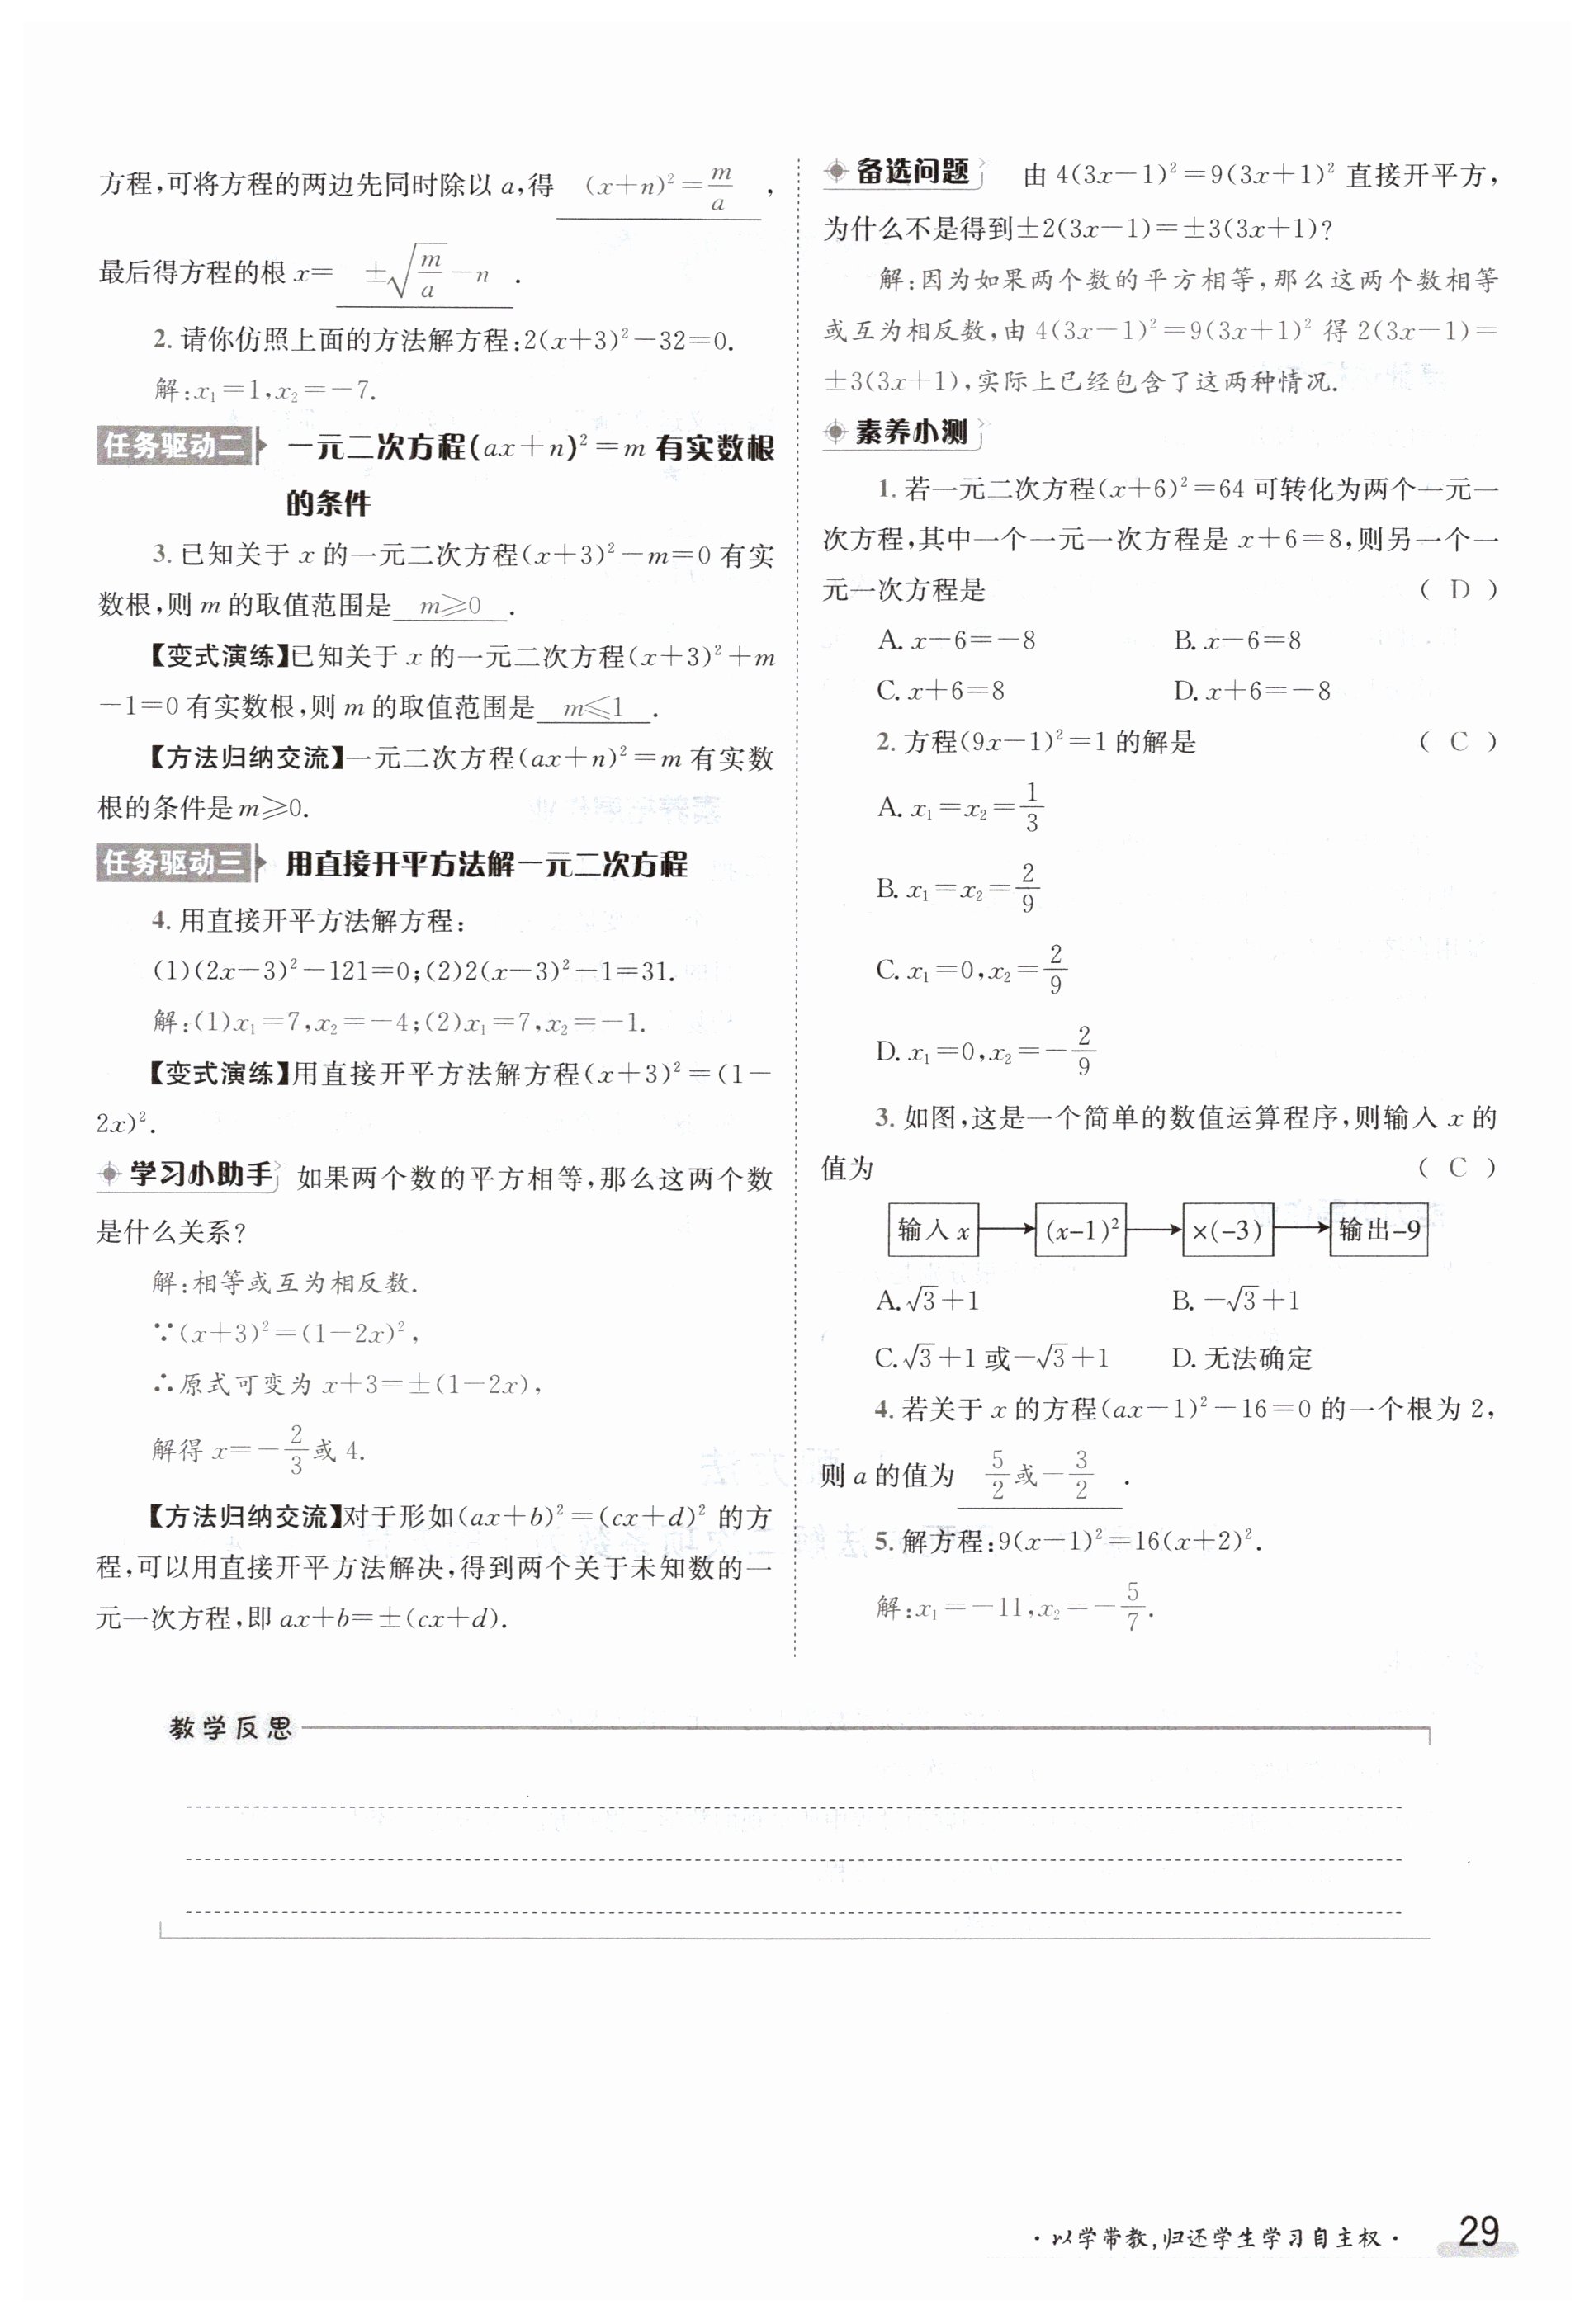 方程,可将方程的两边先同时除以 a,得 (x+n)²=m/a ,
最后得方程的根 x= ±√(m/a)-n .
2. 请你仿照上面的方法解方程:2(x+3)²-32=0.
解:x₁=1,x₂=-7.
任务驱动二 一元二次方程(ax+n)²=m 有实数根
的条件
3. 已知关于 x 的一元二次方程(x+3)²-m=0 有实
数根,则 m 的取值范围是 m≥0 .
【变式演练】已知关于 x 的一元二次方程(x+3)²+m
-1=0 有实数根,则 m 的取值范围是 m≤1 .
【方法归纳交流】一元二次方程(ax+n)²=m 有实数
根的条件是 m≥0.
任务驱动三 用直接开平方法解一元二次方程
4. 用直接开平方法解方程:
(1)(2x-3)²-121=0;(2)2(x-3)²-1=31.
解:(1)x₁=7,x₂=-4;(2)x₁=7,x₂=-1.
【变式演练】用直接开平方法解方程(x+3)²=(1-
2x)².
学习小助手 如果两个数的平方相等,那么这两个数
是什么关系?
解:相等或互为相反数.
∵(x+3)²=(1-2x)²,
∴原式可变为 x+3=±(1-2x),
解得 x=-2/3或 4.
【方法归纳交流】对于形如(ax+b)²=(cx+d)² 的方
程,可以用直接开平方法解决,得到两个关于未知数的一
元一次方程,即 ax+b=±(cx+d).
备选问题 由 4(3x-1)²=9(3x+1)² 直接开平方,
为什么不是得到±2(3x-1)=±3(3x+1)?
解:因为如果两个数的平方相等,那么这两个数相等
或互为相反数,由 4(3x-1)²=9(3x+1)² 得 2(3x-1)=
±3(3x+1),实际上已经包含了这两种情况.
素养小测
1. 若一元二次方程(x+6)²=64 可转化为两个一元一
次方程,其中一个一元一次方程是 x+6=8,则另一个一
元一次方程是 ( D )
A. x-6=-8 B. x-6=8
C. x+6=8 D. x+6=-8
2. 方程(9x-1)²=1 的解是 ( C )
A. x₁=x₂=1/3
B. x₁=x₂=2/9
C. x₁=0,x₂=2/9
D. x₁=0,x₂=-2/9
3. 如图,这是一个简单的数值运算程序,则输入 x 的
值为 ( C )
输入 x (x-1)² ×(-3) 输出-9
A. √3+1 B. -√3+1
C. √3+1 或-√3+1 D. 无法确定
4. 若关于 x 的方程(ax-1)²-16=0 的一个根为 2,
则 a 的值为 5/2或-3/2 .
5. 解方程:9(x-1)²=16(x+2)².
解:x₁=-11,x₂=-5/7.
教学反思
·以学带教,归还学生学习自主权· 29